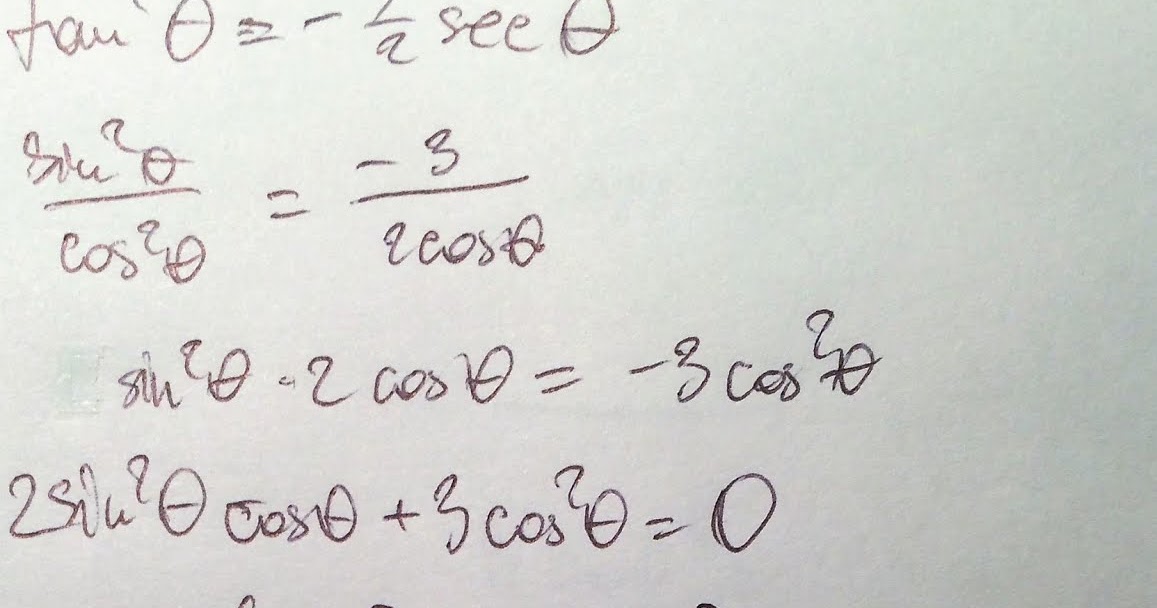 tan θ = - /2 sec θ
sin²θ/cos²θ = -3/2cosθ
sin²θ · 2 cosθ = -3 cos²θ
2sin²θ cosθ + 3 cos²θ = 0